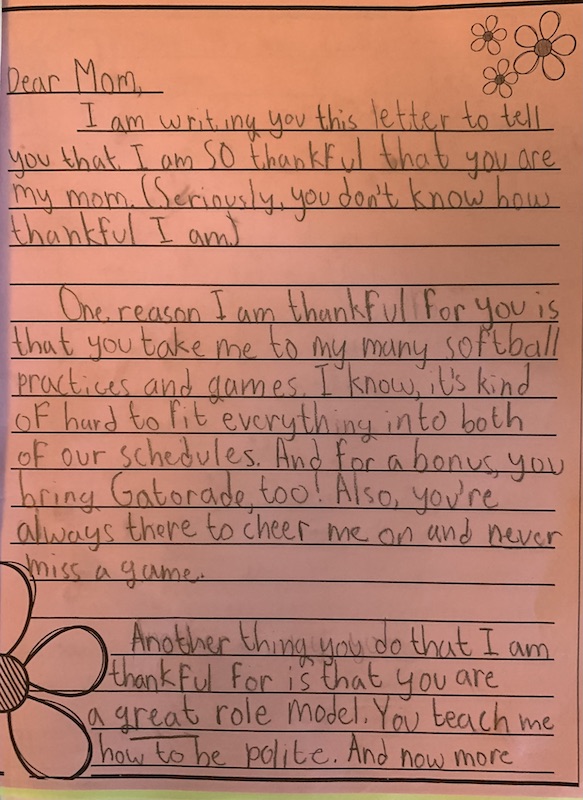 Dear Mom,
I am writing you this letter to tell
you that I am SO thankful that you are
my mom. (Seriously, you don't know how
thankful I am)
One reason I am thankful for you is
that you take me to my many softball
practices and games. I know, it's kind
of hard to fit everything into both
of our schedules. And for a bonus, you
bring Gatorade, too! Also, you're
always there to cheer me on and never
miss a game.
Another thing you do that I am
thankful for is that you are
a great role model. You teach me
how to be polite. And now more